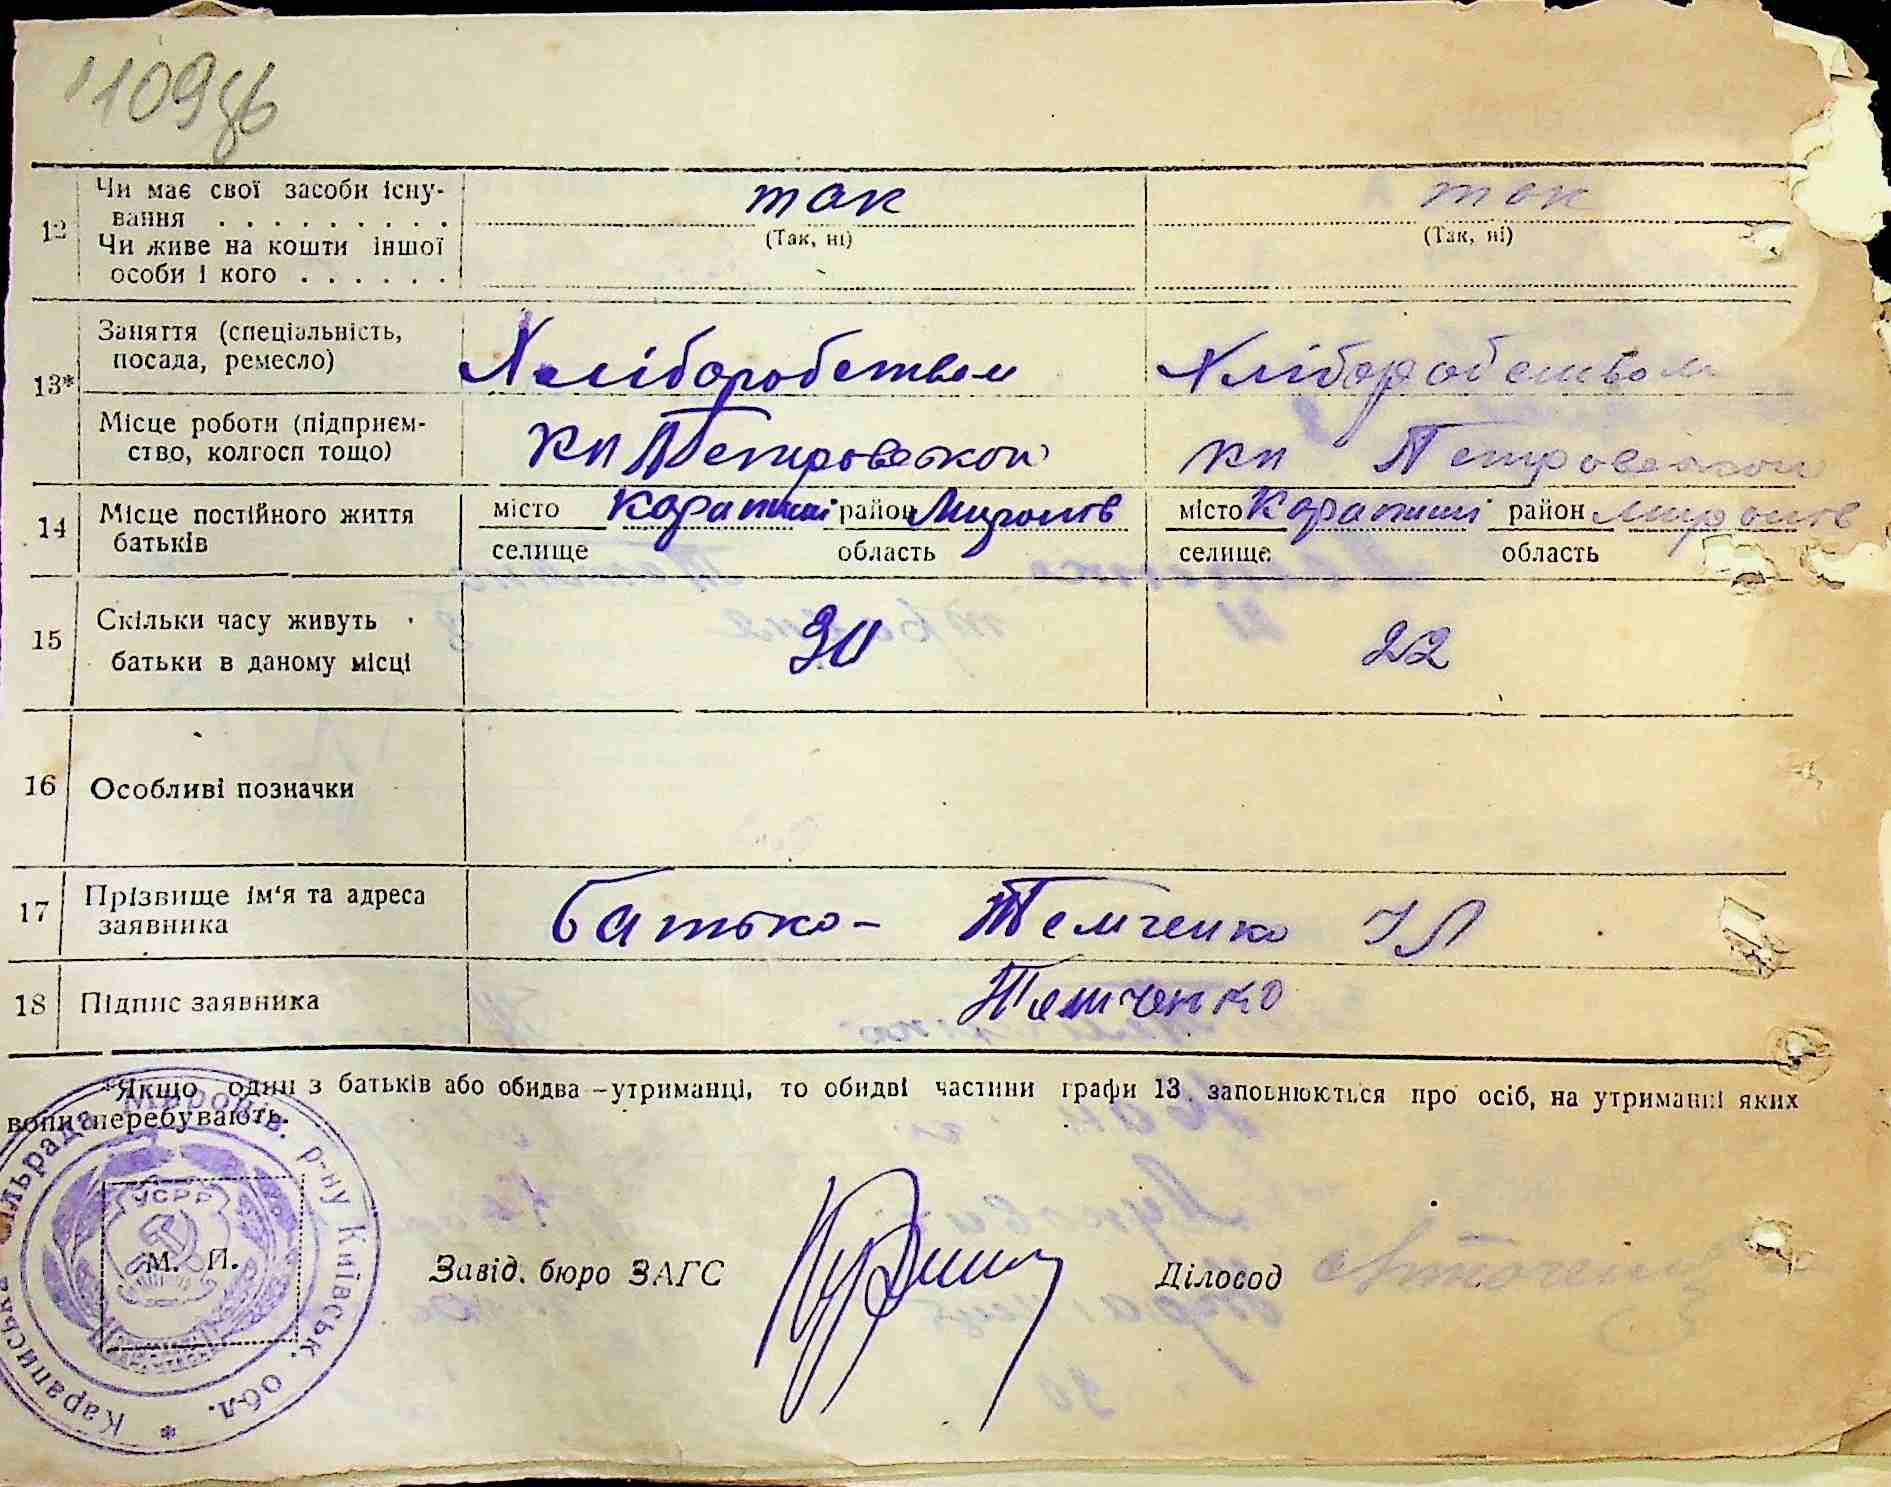 109зв
12 Чи має свої засоби існу-
вання . . . . . . . . . так так
(Так, ні) (Так, ні)
Чи живе на кошти іншої
особи і кого . . . . . .
13* Заняття (спеціальність,
посада, ремесло) Хліборобством Хліборобством
Місце роботи (підприєм-
ство, колгосп тощо) Петровської Петровської
14 Місце постійного життя
батьків місто Карапиші район Миронів місто Карапиші район Миронів
селище область селище область
15 Скільки часу живуть
батьки в даному місці 30 22
16 Особливі позначки
17 Прізвище ім'я та адреса
заявника батько – Темченко І Л
18 Підпис заявника Темченко
*Якщо один з батьків або обидва – утриманці, то обидві частини графи 13 заповнюються про осіб, на утриманні яких
вони перебувають.
Караписька сільрада Миронів. р-ну Київськ. обл. *
УСРР
М. П.
Завід. бюро ЗАГС Діловод